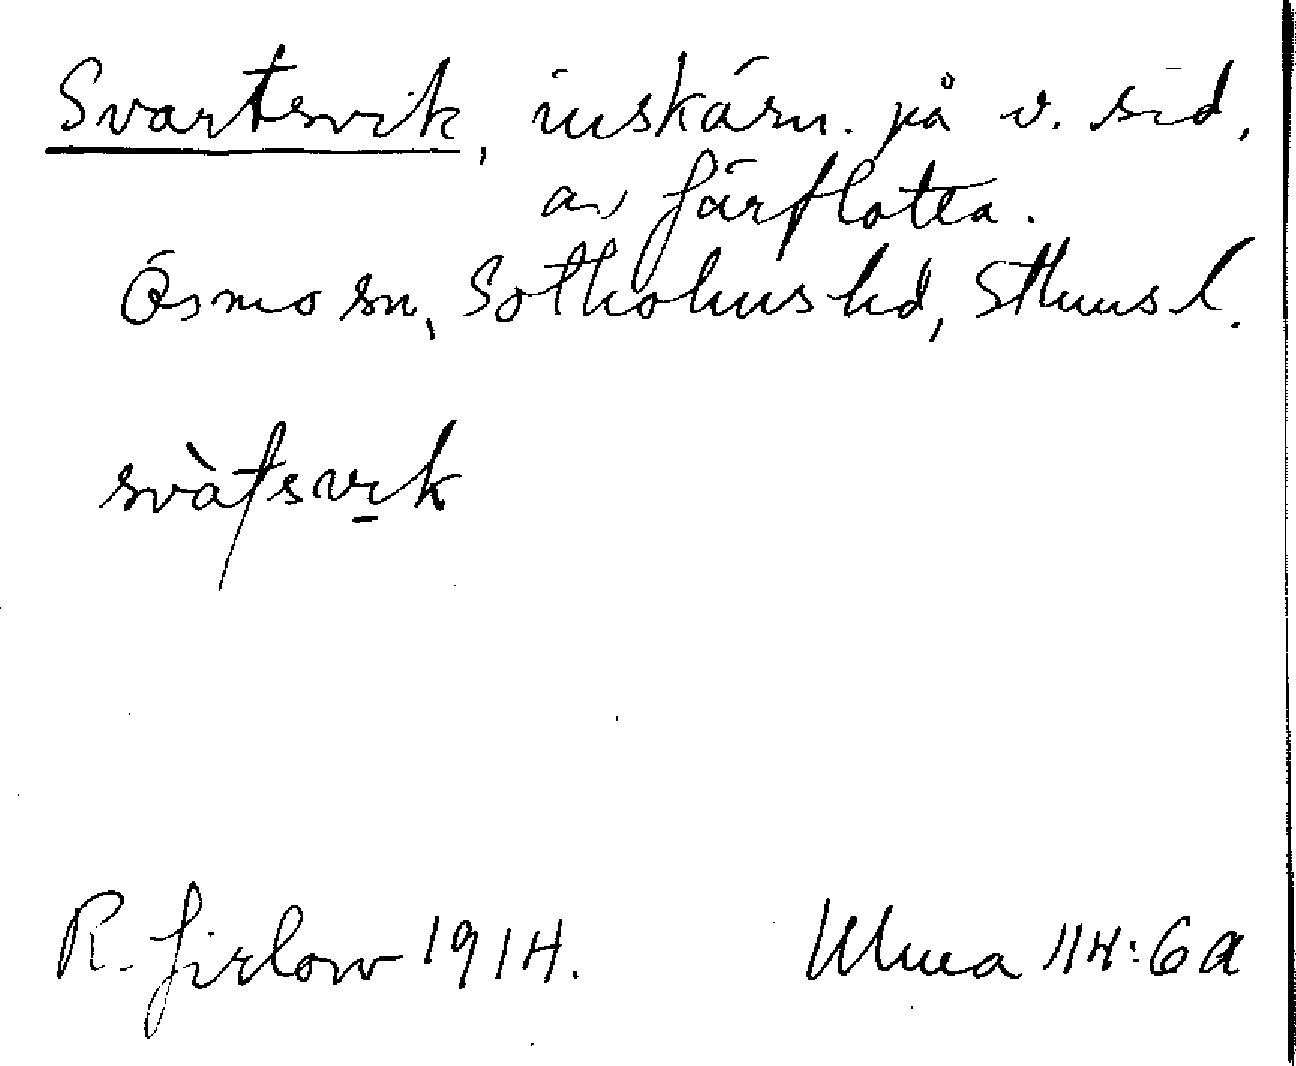 Svartsvik, inskärn. på v. sid.
av Järflotta.
Ösmo sn, Sotholms hd, Sthms l.
svàt̩svi̠k
R. Jirlow 1914. Ulma 114:6a